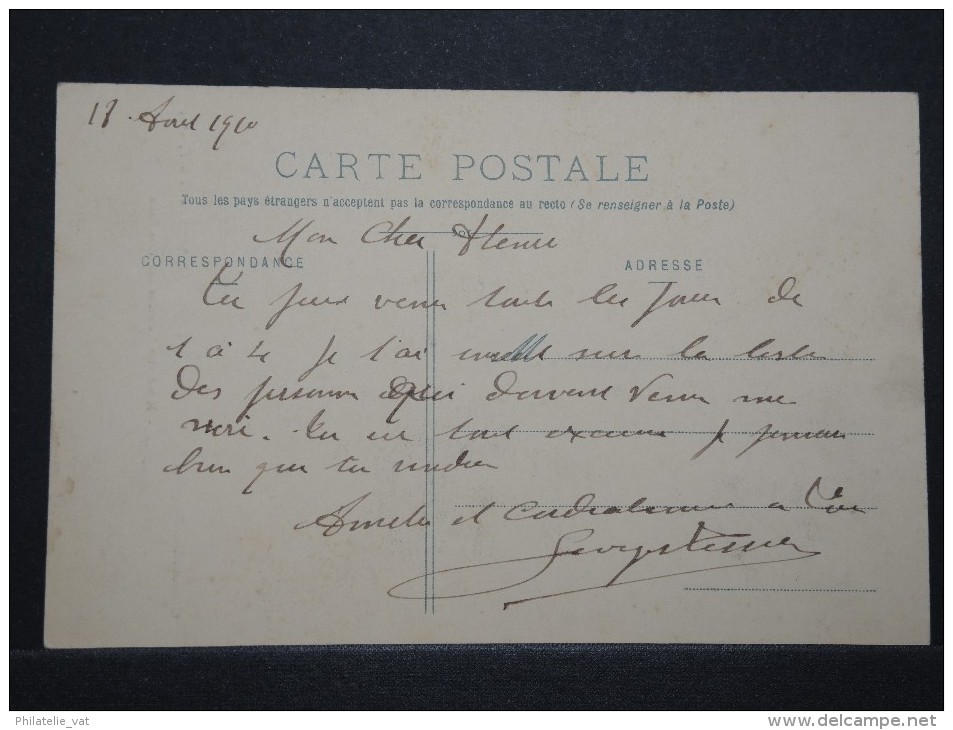 18 Avril 1910
CARTE POSTALE
Tous les pays étrangers n'acceptent pas la correspondance au recto (Se renseigner à la Poste)
Mon Cher
CORRESPONDANCE
ADRESSE
Tu peux venir tous les Jours de
1 à 4 Je t'ai sur la liste
Des personnes qui doivent Venir me
voir. Tu es tout excusé je pensais
bien que tu
et Cordialement a Toi
Georges
Philatelie_vat
www.delcampe.net